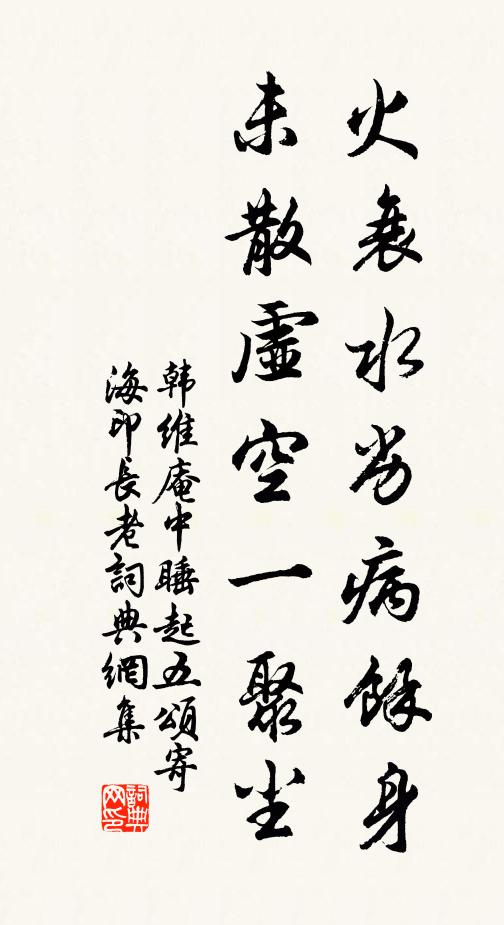 火衰水劣病餘身
未散虛空一聚尘
韩維庵中睡起五頌寄
海印長老詞典網集
詞典网印